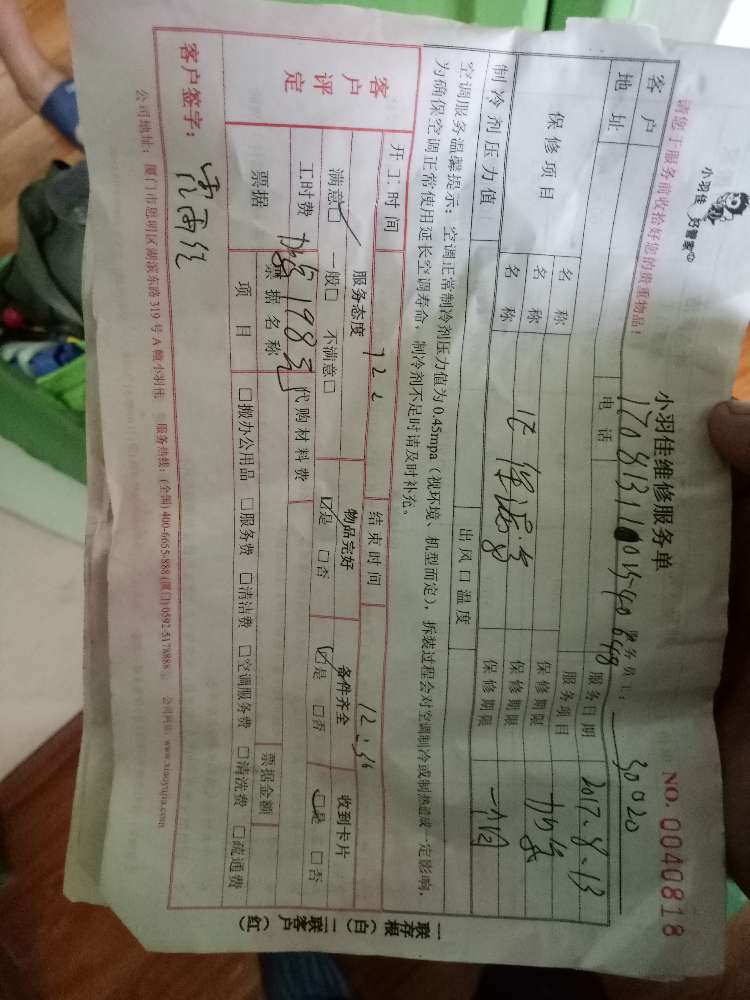 小羽佳 好管家
小羽佳维修服务单
NO. 0040818
请您于服务前收拾好您的贵重物品!
服务员工: 30020
客户
地址
电话
服务日期 2017.8.13
服务项目 加氟
保修项目
名称
名称
保修期限
名称
保修期限 一个月
制冷剂压力值
出风口温度
空调服务温馨提示: 空调正常制冷剂压力值为 0.45mpa (视环境、机型而定), 拆装过程会对空调制冷或制热造成一定影响,
为确保空调正常使用延长空调寿命, 制冷剂不足时请及时补充。
开工时间
结束时间 12:36
客户评定
服务态度
物品完好
备件齐全
收到卡片
满意□ 一般□ 不满意□
□是 □否
□是 □否
□是 □否
工时费 加氟198元
代购材料费
票据
票据名称
票据金额
项目
□搬办公用品 □服务费 □清洁费 □空调服务费 □清洗费 □疏通费
客户签字:
公司地址: 厦门市思明区湖滨东路 319 号 A 幢小羽佳
服务热线: (全国) 400-6655-888 (厦门) 0592-5178888
公司网址: www.xiaoyujia.com
一联存根(白) 二联客户(红)